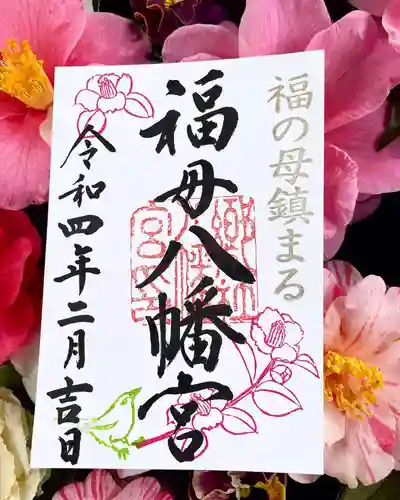 福の母鎮まる
福母八幡宮
令和四年二月吉日